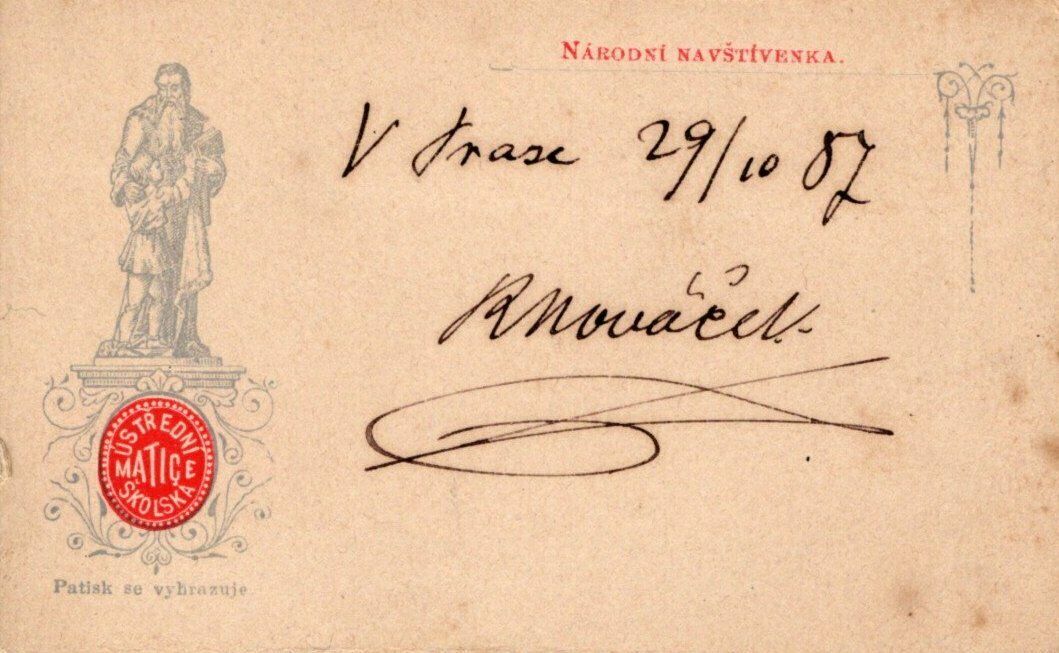 NÁRODNÍ NAVŠTÍVENKA.
V Praze 29/10 87
K Nováček.
ÚSTŘEDNÍ
MATICE
ŠKOLSKÁ
Patisk se vyhrazuje